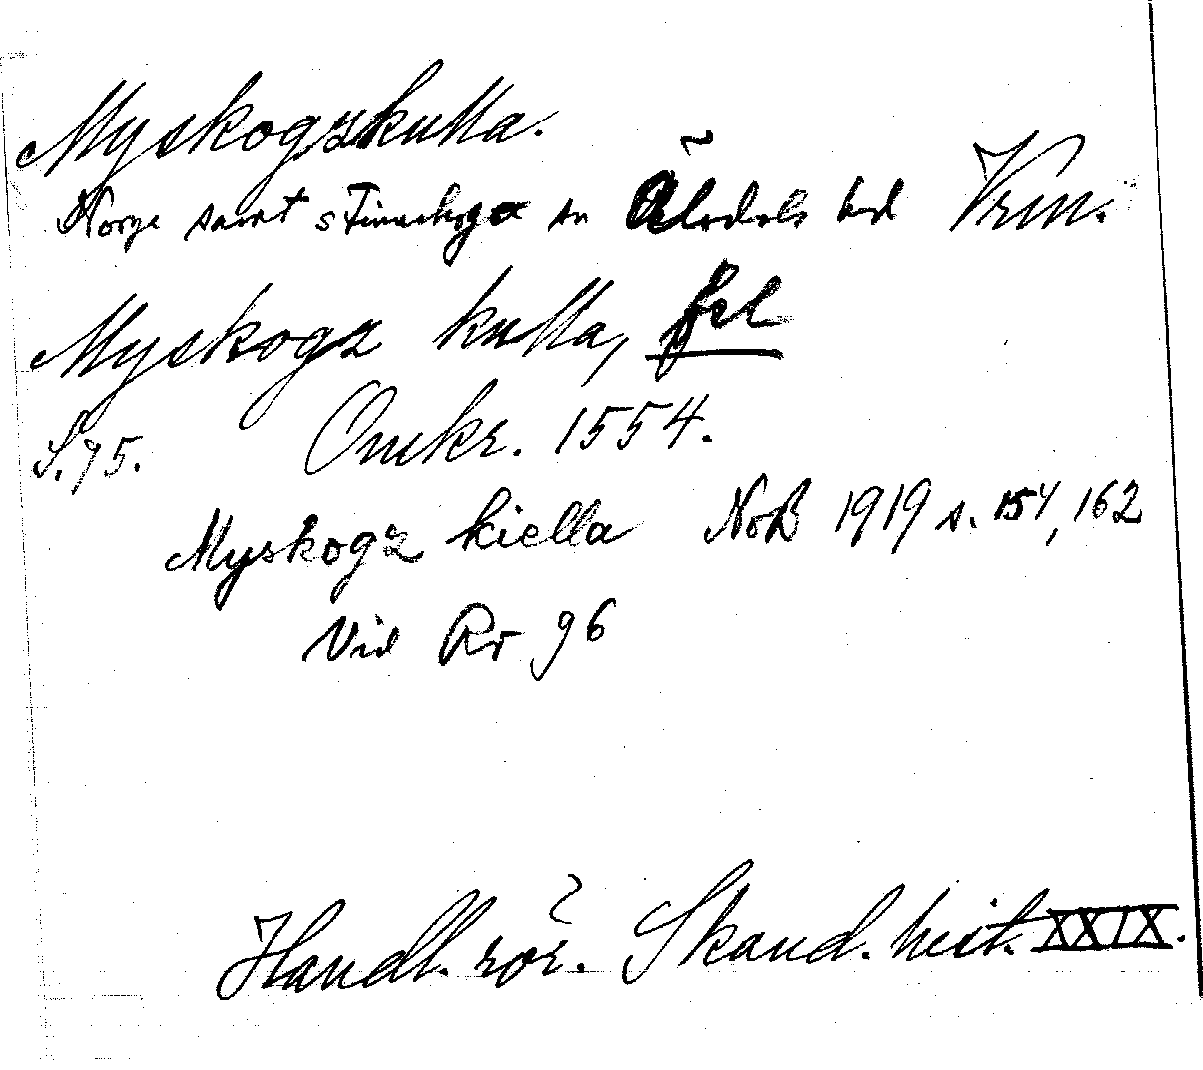 Myskogzkulla.
Norge samt s Finnskoga sn Älvdals hd Vrm.
Myskogz kulla, fel
S. 75. Omkr. 1554.
Myskogz kiella NoB 1919 s. 154, 162
Vid Rr 96
Handl. rör. Skand. hist. XXIX.